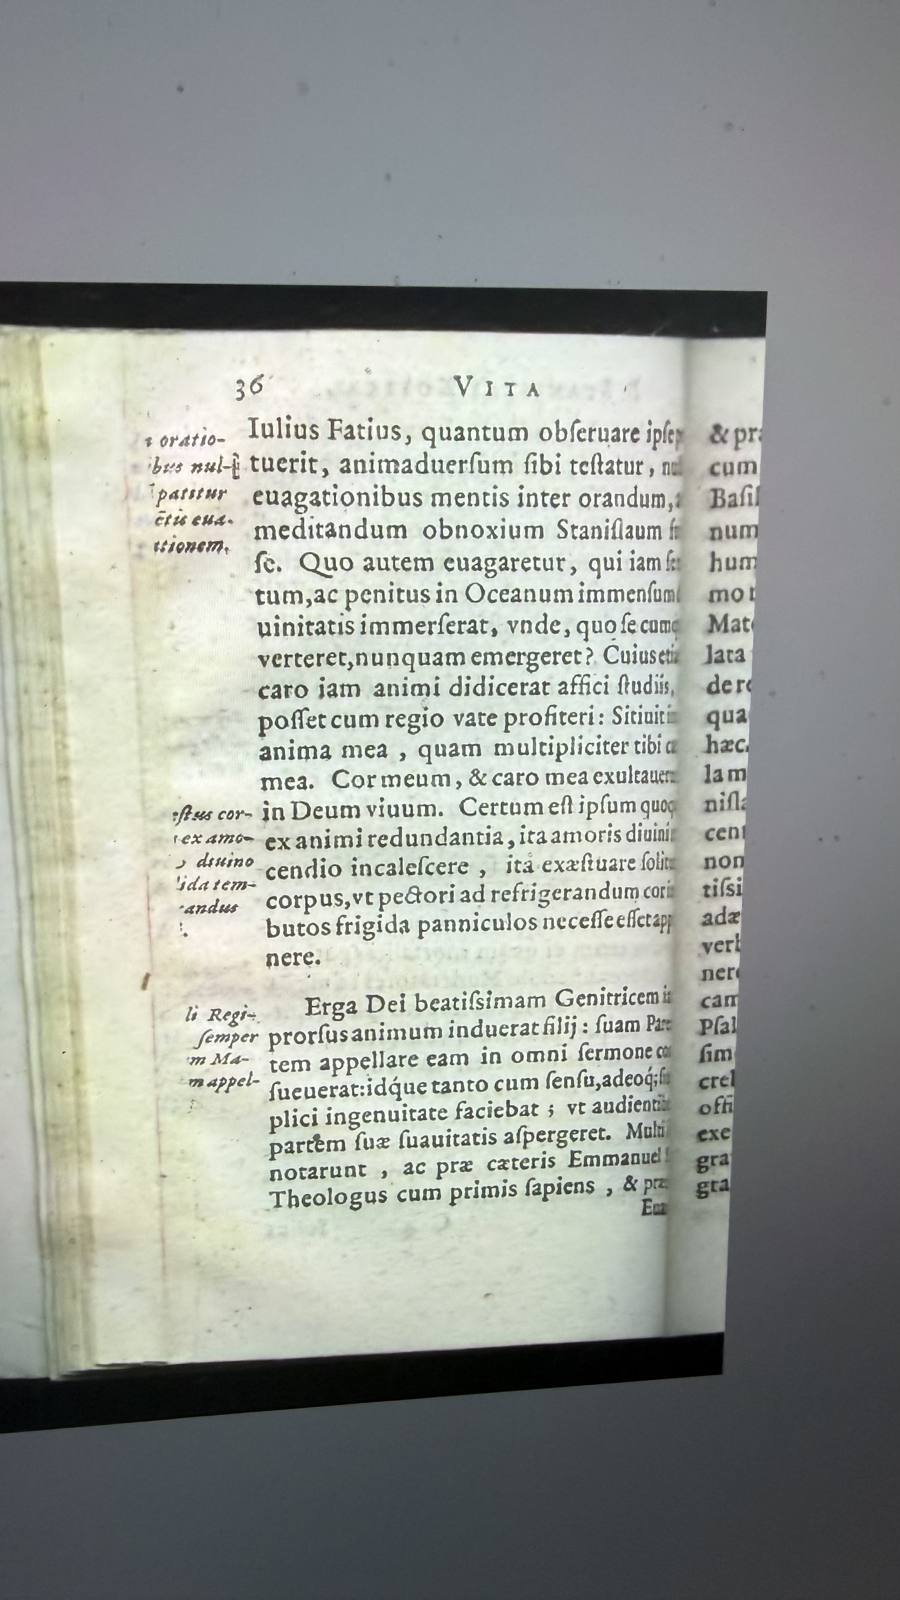 36 VITA
Iulius Fatius, quantum obſeruare
tuerit, animaduerſum ſibi teſtatur,
euagationibus mentis inter orandum,
meditandum obnoxium Staniſlaum
ſe. Quo autem euagaretur, qui iam
tum, ac penitus in Oceanum immenſum
uinitatis immerſerat, vnde, quo ſe cumq
verteret, nunquam emergeret? Cuius
caro iam animi didicerat affici ſtudiis,
poſſet cum regio vate profiteri: Sitiuit
anima mea, quam multipliciter tibi
mea. Cor meum, & caro mea
in Deum viuum. Certum eſt ipſum
ex animi redundantia, ita amoris diuini
cendio incaleſcere, ità exæſtuare
corpus, vt pectori ad refrigerandum
butos frigida panniculos neceſſe eſſet
nere.
Erga Dei beatiſsimam Genitricem
prorſus animum induerat filij: ſuam
tem appellare eam in omni ſermone
ſueuerat: idq́ue tanto cum ſenſu, adeoq́;
plici ingenuitate faciebat; vt
partem ſuæ ſuauitatis aſpergeret. Multi
notarunt, ac præ cæteris Emmanuel
Theologus cum primis ſapiens, &
oratio-
bus nul-
patitur
ctis eua-
tionem.
ſtus cor-
ex amo-
diuino
ida tem-
randus
li Regi-
ſemper
m Ma-
m appel-
& pr
cum
Baſil
num
hum
mor
Mat
lata
dere
qua
hæc
lam
niſla
cen
non
tiſsi
adæ
verb
ner
cam
Pſal
ſim
crel
offi
exe
gra
gta